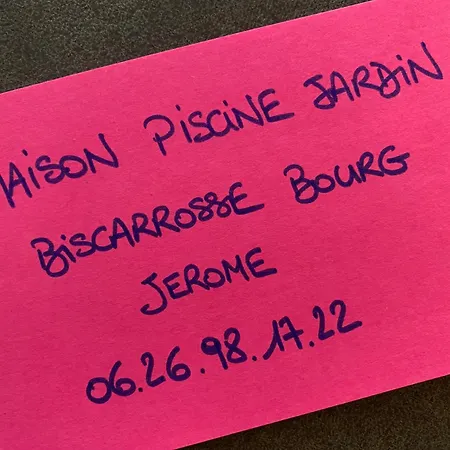 MAISON PISCINE JARDIN
BISCARROSSE BOURG
JEROME
06.26.98.17.22